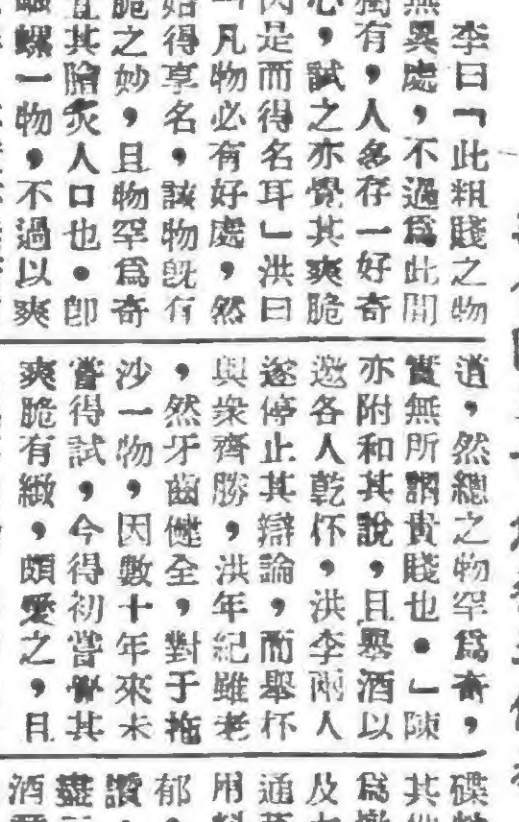 李曰「此粗賤之物
無異處，不過爲此間
獨有，人多存一好奇
心，試之亦覺其爽脆
是而得名耳」洪曰
凡物必有好處，然
始得享名，該物旣有
脆之妙，且物罕爲奇
其膾炙人口也●卽
螺一物，不過以爽
道，然總之物罕爲奇，
實無所謂貴賤也●」陳
亦附和其說，且舉酒以
邀各人乾杯，洪李兩人
遂停止其辯論，而舉杯
與衆齊勝，洪年紀雖老
，然牙齒健全，對于拖
沙一物，因數十年來未
嘗得試，今得初嘗覺其
爽脆有緻，頗愛之，且
碟
其
爲
及
通
用
郁
讚
盡
酒